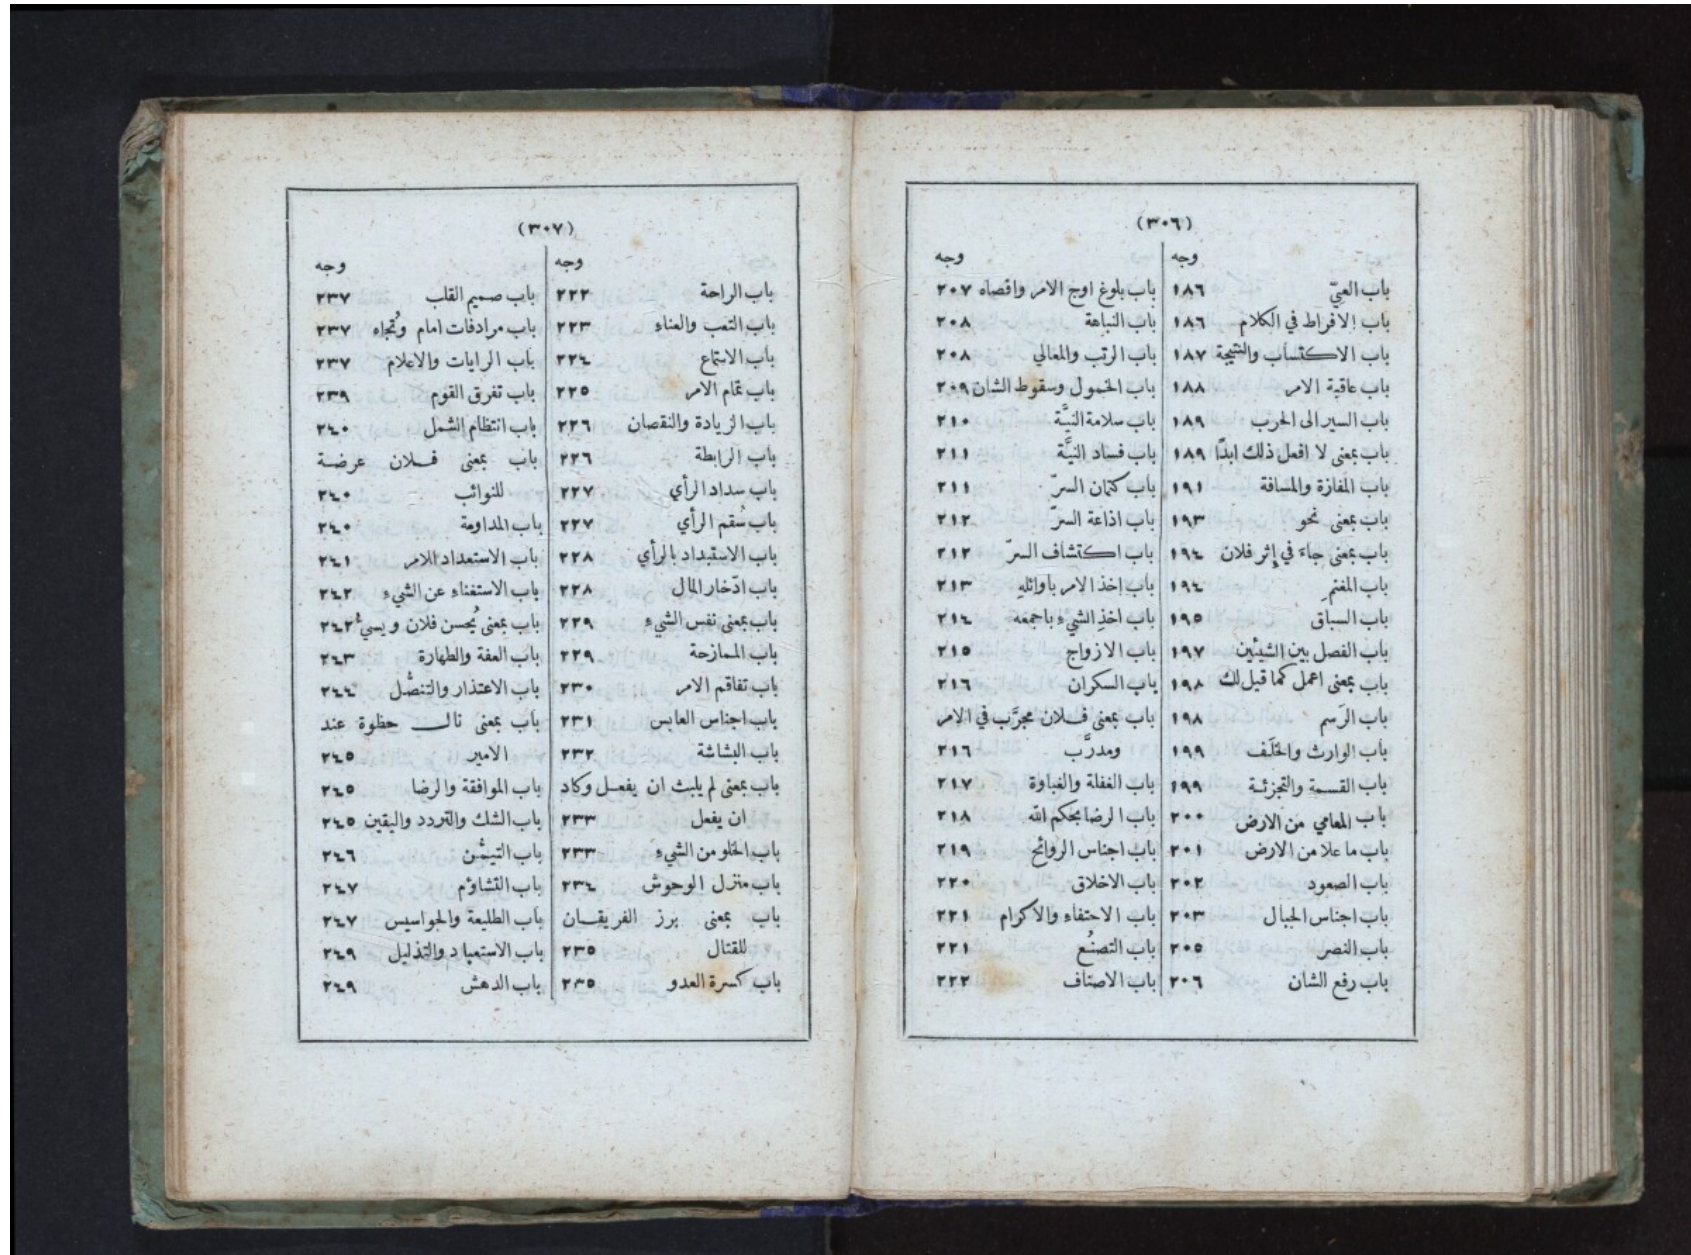 (٣٠٦)
وجه
باب العيّ ١٨٦
باب الافراط في الكلام ١٨٦
باب الاكتساب والنتيجة ١٨٧
باب عاقبة الامر ١٨٨
باب السير الى الحرب ١٨٩
باب بمعنى لا افعل ذلك ابدًا ١٨٩
باب المفازة والمسافة ١٩١
باب بمعنى نحو ١٩٣
باب بمعنى جاءَ في إِثر فلان ١٩٤
باب المغنم ١٩٤
باب السباق ١٩٥
باب الفصل بين الشيئين ١٩٧
باب بمعنى اعمل كما قيل لك ١٩٨
باب الرَسم ١٩٨
باب الوارث والخَلَف ١٩٩
باب القسمة والتجزئة ١٩٩
باب المعامي من الارض ٢٠٠
باب ما علا من الارض ٢٠١
باب الصعود ٢٠٢
باب اجناس الجبال ٢٠٣
باب النصر ٢٠٥
باب رفع الشان ٢٠٦
وجه
باب بلوغ اوج الامر واقصاه ٢٠٧
باب النباهة ٢٠٨
باب الرتب والمعالي ٢٠٨
باب الخمول وسقوط الشان ٢٠٩
باب سلامة النيَّة ٢١٠
باب فساد النيَّة ٢١١
باب كتمان السرّ ٢١١
باب اذاعة السرّ ٢١٢
باب اكتشاف السرّ ٢١٢
باب اخذ الامر باوائلهِ ٢١٣
باب اخذ الشيءِ باجمعه ٢١٤
باب الازواج ٢١٥
باب السكران ٢١٦
باب بمعنى فلان مجرَّب في الامر
ومدرَّب ٢١٦
باب الغفلة والغباوة ٢١٧
باب الرضا بحكم الله ٢١٨
باب اجناس الروائح ٢١٩
باب الاخلاق ٢٢٠
باب الاحتفاء والاكرام ٢٢١
باب التصنُّع ٢٢١
باب الاصناف ٢٢٢
(٣٠٧)
وجه
باب الراحة ٢٢٢
باب التعب والعناء ٢٢٣
باب الاستماع ٢٢٤
باب تمام الامر ٢٢٥
باب الزيادة والنقصان ٢٢٦
باب الرابطة ٢٢٦
باب سداد الرأي ٢٢٧
باب سُقم الرأي ٢٢٧
باب الاستبداد بالرأي ٢٢٨
باب ادّخار المال ٢٢٨
باب بمعنى نفس الشيءِ ٢٢٩
باب الممازحة ٢٢٩
باب تفاقم الامر ٢٣٠
باب اجناس العابس ٢٣١
باب البشاشة ٢٣٢
باب بمعنى لم يلبث ان يفعل وكاد
ان يفعل ٢٣٣
باب الخلو من الشيءِ ٢٣٣
باب منزل الوحوش ٢٣٤
باب بمعنى برز الفريقان
للقتال ٢٣٥
باب كسرة العدو ٢٣٥
وجه
باب صميم القلب ٢٣٧
باب مرادفات امام وتُجاه ٢٣٧
باب الرايات والاعلام ٢٣٧
باب تفرق القوم ٢٣٩
باب انتظام الشمل ٢٤٠
باب بمعنى فلان عرضة
للنوائب ٢٤٠
باب المداومة ٢٤٠
باب الاستعداد للامر ٢٤١
باب الاستغناءِ عن الشيءِ ٢٤٢
باب بمعنى يُحسن فلان ويسيءُ ٢٤٢
باب العفة والطهارة ٢٤٣
باب الاعتذار والتنصُّل ٢٤٤
باب بمعنى نال حظوة عند
الامير ٢٤٥
باب الموافقة والرضا ٢٤٥
باب الشك والتردد واليقين ٢٤٥
باب التيمُّن ٢٤٦
باب التشاؤم ٢٤٧
باب الطليعة والجواسيس ٢٤٧
باب الاستعباد والتذليل ٢٤٩
باب الدهش ٢٤٩